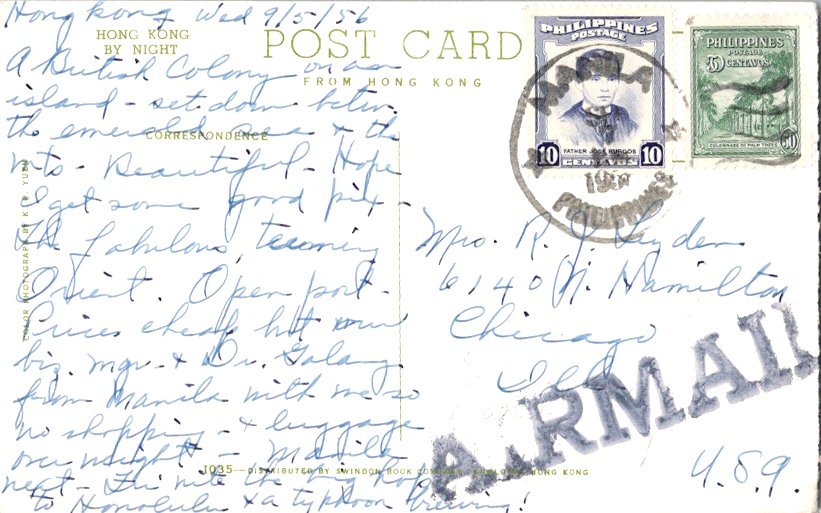 Hong Kong Wed 9/5/56
HONG KONG
BY NIGHT
POST CARD
FROM HONG KONG
CORRESPONDENCE
A British Colony on an
island - set down betw
the emerald sea & the
mts - Beautiful - Hope
I get some good pix -
The fabulous, teeming
Orient. Open port -
Prices cheap but our
biz. mgr. & Dr. Galang
from Manila with me so
no shopping - & luggage
overweight - Manila
next - Fri nite the big hop
to Honolulu & a typhoon brewing!
COLOR PHOTOGRAPH BY K. P. YUEN
1035—DISTRIBUTED BY SWINDON BOOK COMPANY, KOWLOON, HONG KONG
PHILIPPINES
POSTAGE
10 FATHER JOSE BURGOS 10
CENTAVOS
PHILIPPINES
POSTAGE
50 CENTAVOS
COLONNADE OF PALM TREES
50
MANILA
PHILIPPINES
Mrs. R. J. Lyden
6140 N. Hamilton
Chicago
Ill
AIRMAIL
U.S.A.